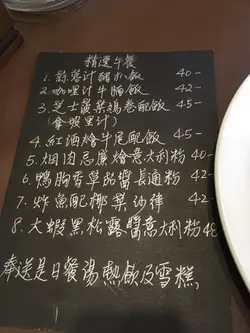 精選午餐
1. 蒜蓉汁豬扒飯 40-
2. 咖哩汁牛腩飯 42-
3. 芝士菠菜鷄卷配飯 45-
(拿破里汁)
4. 紅酒燴牛尾配飯 45-
5. 烟肉忌廉燴意大利粉 40-
6. 鴨胸香草品醬長通粉 42-
7. 炸魚配椰菜沙律 42-
8. 大蝦黑松露醬意大利粉 48
奉送是日餐湯熱飲及雪糕